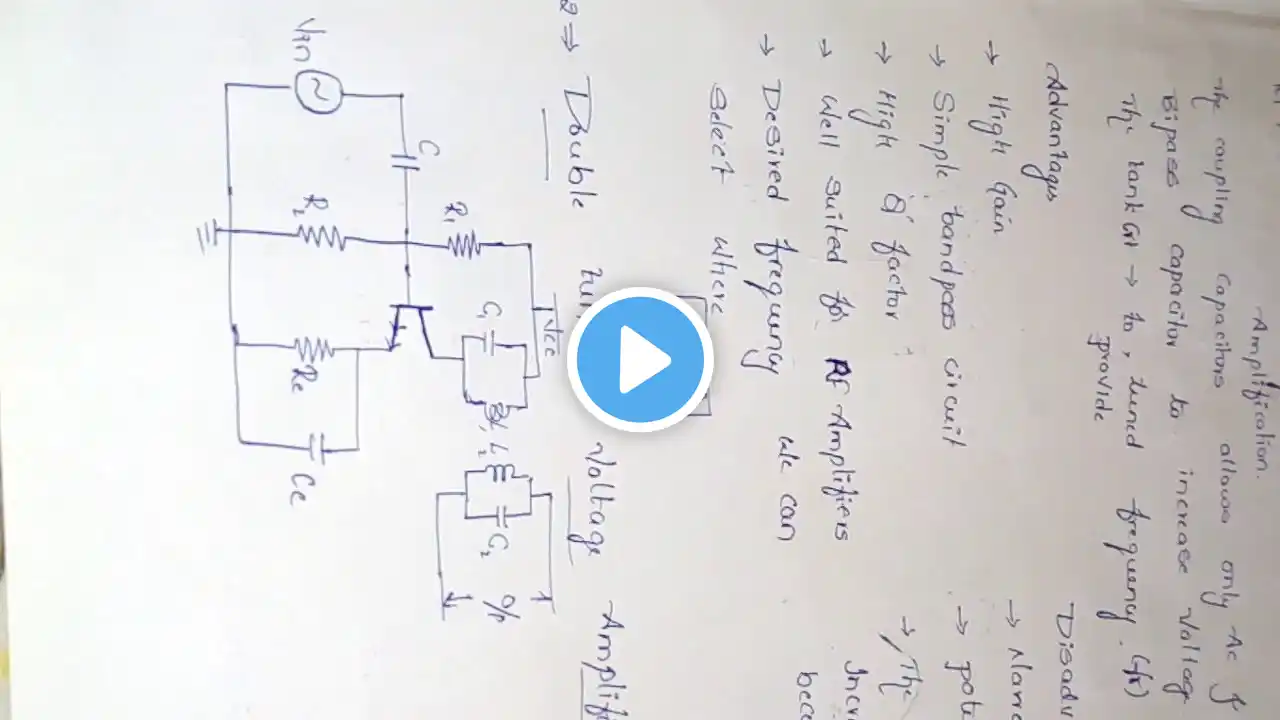 Amplification.
The coupling capacitors allows only Ac
Bipass capacitor to increase Voltage
The tank ckt → to, tuned frequency. (fr)
provide
Advantages
→ High Gain
→ Simple bandpass circuit
→ High Q factor
→ Well suited for Rf Amplifiers
→ Desired frequency we can
select where
Disadv
→ Narro
→ pote
→ The
Incre
beco
2 ⇒ Double tu Voltage Amplifi
Vin
C
R1
R2
Vcc
C1
L1 L2
C2
O/P
Re
Ce